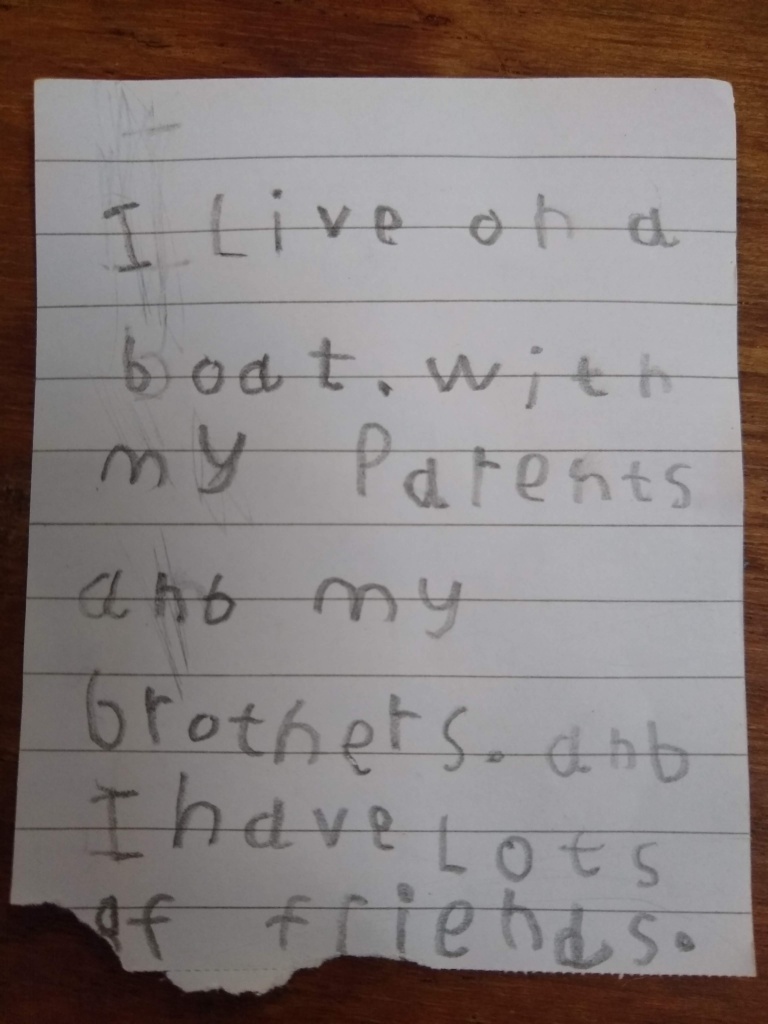 I Live on a
boat. with
my Parents
anb my
brothers. anb
I have Lots
of friends.